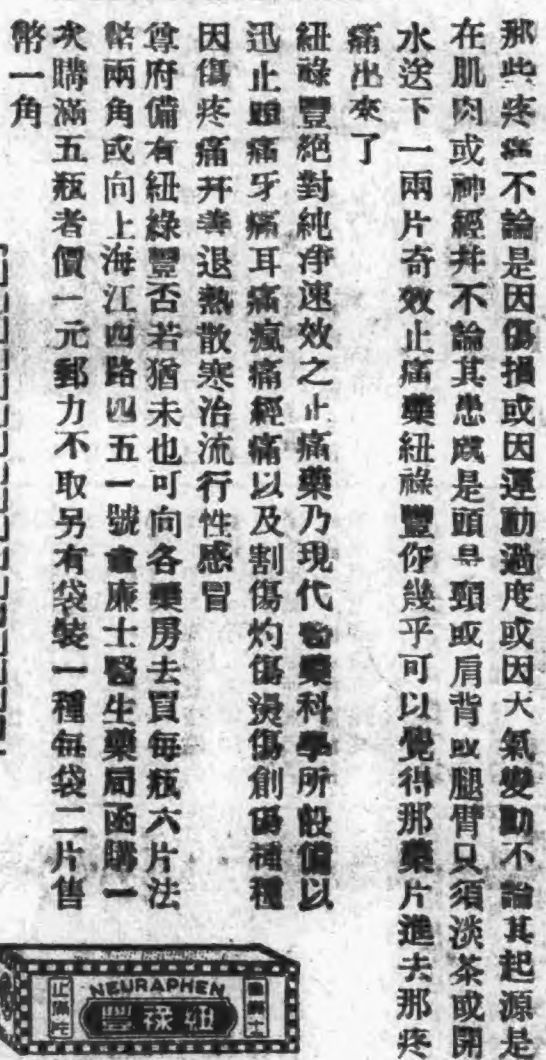 那些疼痛不論是因傷損或因運動過度或因大氣變動不論其起源是
在肌肉或神經并不論其患處是頭是頸或肩背或腿臂只須淡茶或開
水送下一兩片奇效止痛藥紐祿豐你幾乎可以覺得那藥片進去那疼
痛出來了
紐祿豐絕對純净速效之止痛藥乃現代醫藥科學所設備以
迅止頭痛牙痛耳痛瘋痛經痛以及割傷灼傷燙傷創傷種種
因傷疼痛并善退熱散寒治流行性感冒
尊府備有紐綠豐否若猶未也可向各藥房去買每瓶六片法
幣兩角或向上海江西路四五一號韋廉士醫生藥局函購一
次購滿五瓶者價一元郵力不取另有袋裝一種每袋二片售
幣一角
NEURAPHEN
紐祿豐
韋廉士
止痛片